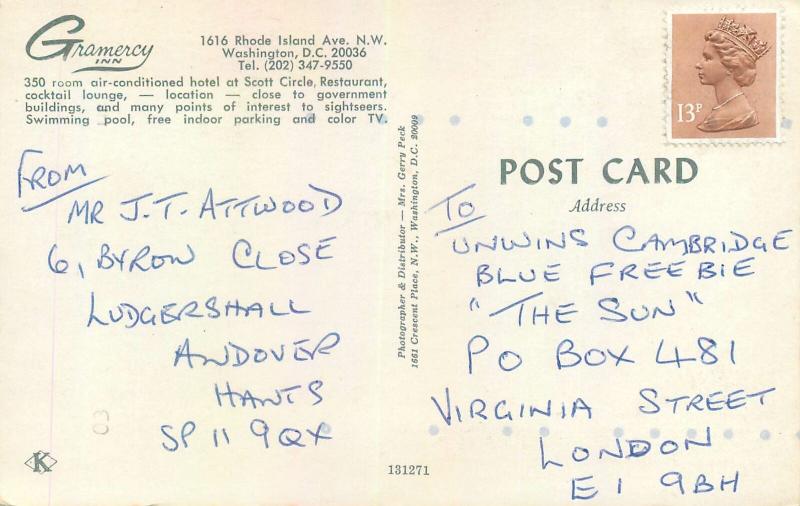 Gramercy
INN
1616 Rhode Island Ave. N.W.
Washington, D.C. 20036
Tel. (202) 347-9550
350 room air-conditioned hotel at Scott Circle, Restaurant,
cocktail lounge, — location — close to government
buildings, and many points of interest to sightseers.
Swimming pool, free indoor parking and color TV.
FROM
MR J.T. ATTWOOD
6, BYRON CLOSE
LUDGERSHALL
ANDOVER
HANTS
SP11 9QX
8
K
Photographer & Distributor — Mrs. Gerry Peck
1661 Crescent Place, N.W., Washington, D.C. 20009
131271
13P
POST CARD
Address
TO
UNWINS CAMBRIDGE
BLUE FREEBIE
"THE SUN"
PO BOX 481
VIRGINIA STREET
LONDON
E1 9BH